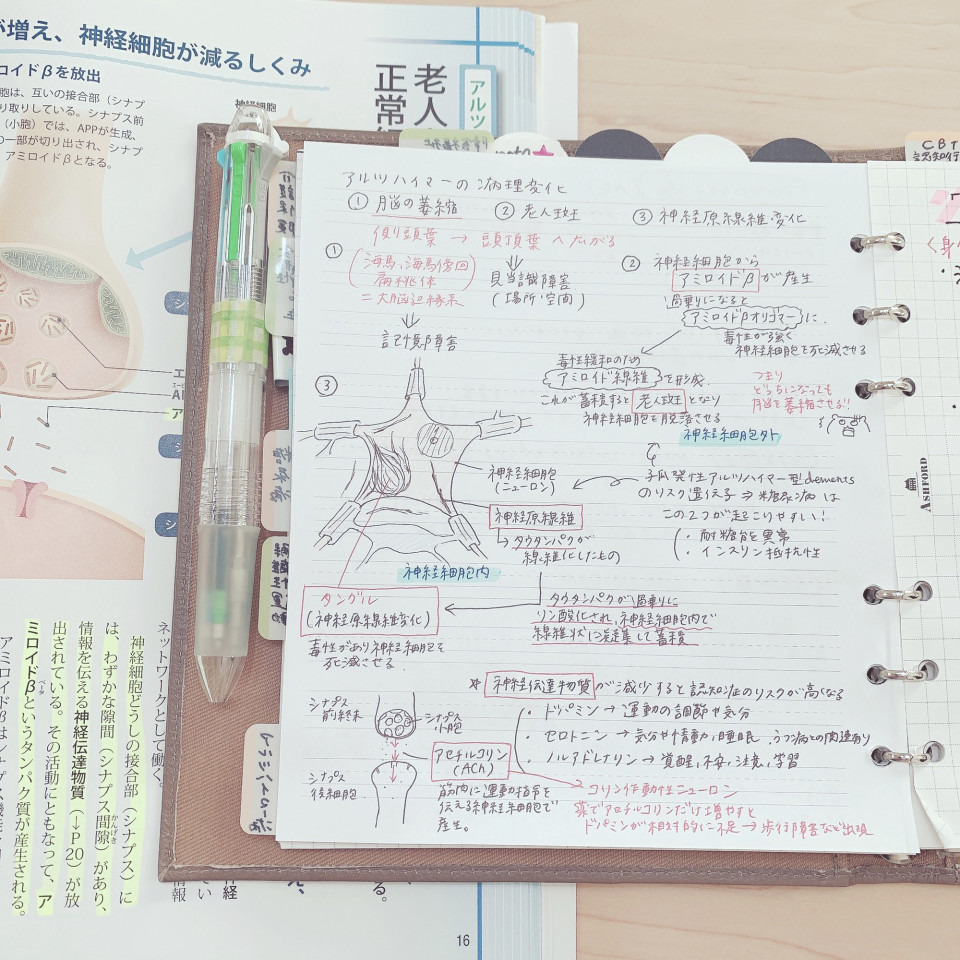 が増え、神経細胞が減るしくみ
ロイドβを放出
胞は、互いの接合部(シナプ
り取りしている。シナプス前
(小胞)では、APPが生成、
の一部が切り出され、シナプ
アミロイドβとなる。
神経細胞
アルツ
老人
正常
CBT
アルツハイマーの病理変化
① 脳の萎縮 ② 老人斑 ③ 神経原線維変化
側頭葉 → 頭頂葉へ広がる
①
(海馬、海馬傍回
扁桃体
=大脳辺縁系
記憶障害
見当識障害
(場所・空間)
② 神経細胞から
アミロイドβが産生
過剰になると
アミロイドβオリゴマーに、
毒性が強く
神経細胞を死滅させる
毒性緩和のため
アミロイド線維を形成、
これが蓄積すると老人斑となり
神経細胞を脱落させる
つまり
どっちになっても
脳を萎縮させる!!
神経細胞外
③
神経細胞
(ニューロン)
神経原線維
タウタンパクが
線維化したもの
神経細胞内
孤発性アルツハイマー型dements
のリスク遺伝子⇒糖尿病は
この2つが起こりやすい!
・耐糖能異常
・インスリン抵抗性
タングル
(神経原線維変化)
毒性があり神経細胞を
死滅させる
タウタンパクが過剰に
リン酸化され、神経細胞内で
線維状に凝集して蓄積
☆神経伝達物質が減少すると認知症のリスクが高くなる
・ドパミン→運動の調節や気分
・セロトニン→気分や情動、睡眠、うつ病との関連有り
・ノルアドレナリン→覚醒、不安、注意、学習
シナプス
前終末
シナプス
小胞
アセチルコリン
(ACh)
シナプス
後細胞
筋肉に運動指令を
伝える神経細胞で
産生。
コリン作動性ニューロン
薬でアセチルコリンだけ増やすと
ドパミンが相対的に不足→歩行障害など出現
ASHFORD
アルツハイマー病
ネットワークとして働く。
神経細胞どうしの接合部(シナプス)に
は、わずかな隙間(シナプス間隙)があり、
かんげき
情報を伝える神経伝達物質(→P20)が放
出されている。その活動にともなって、ア
ミロイドβというタンパク質が産生される。
ベータ
16